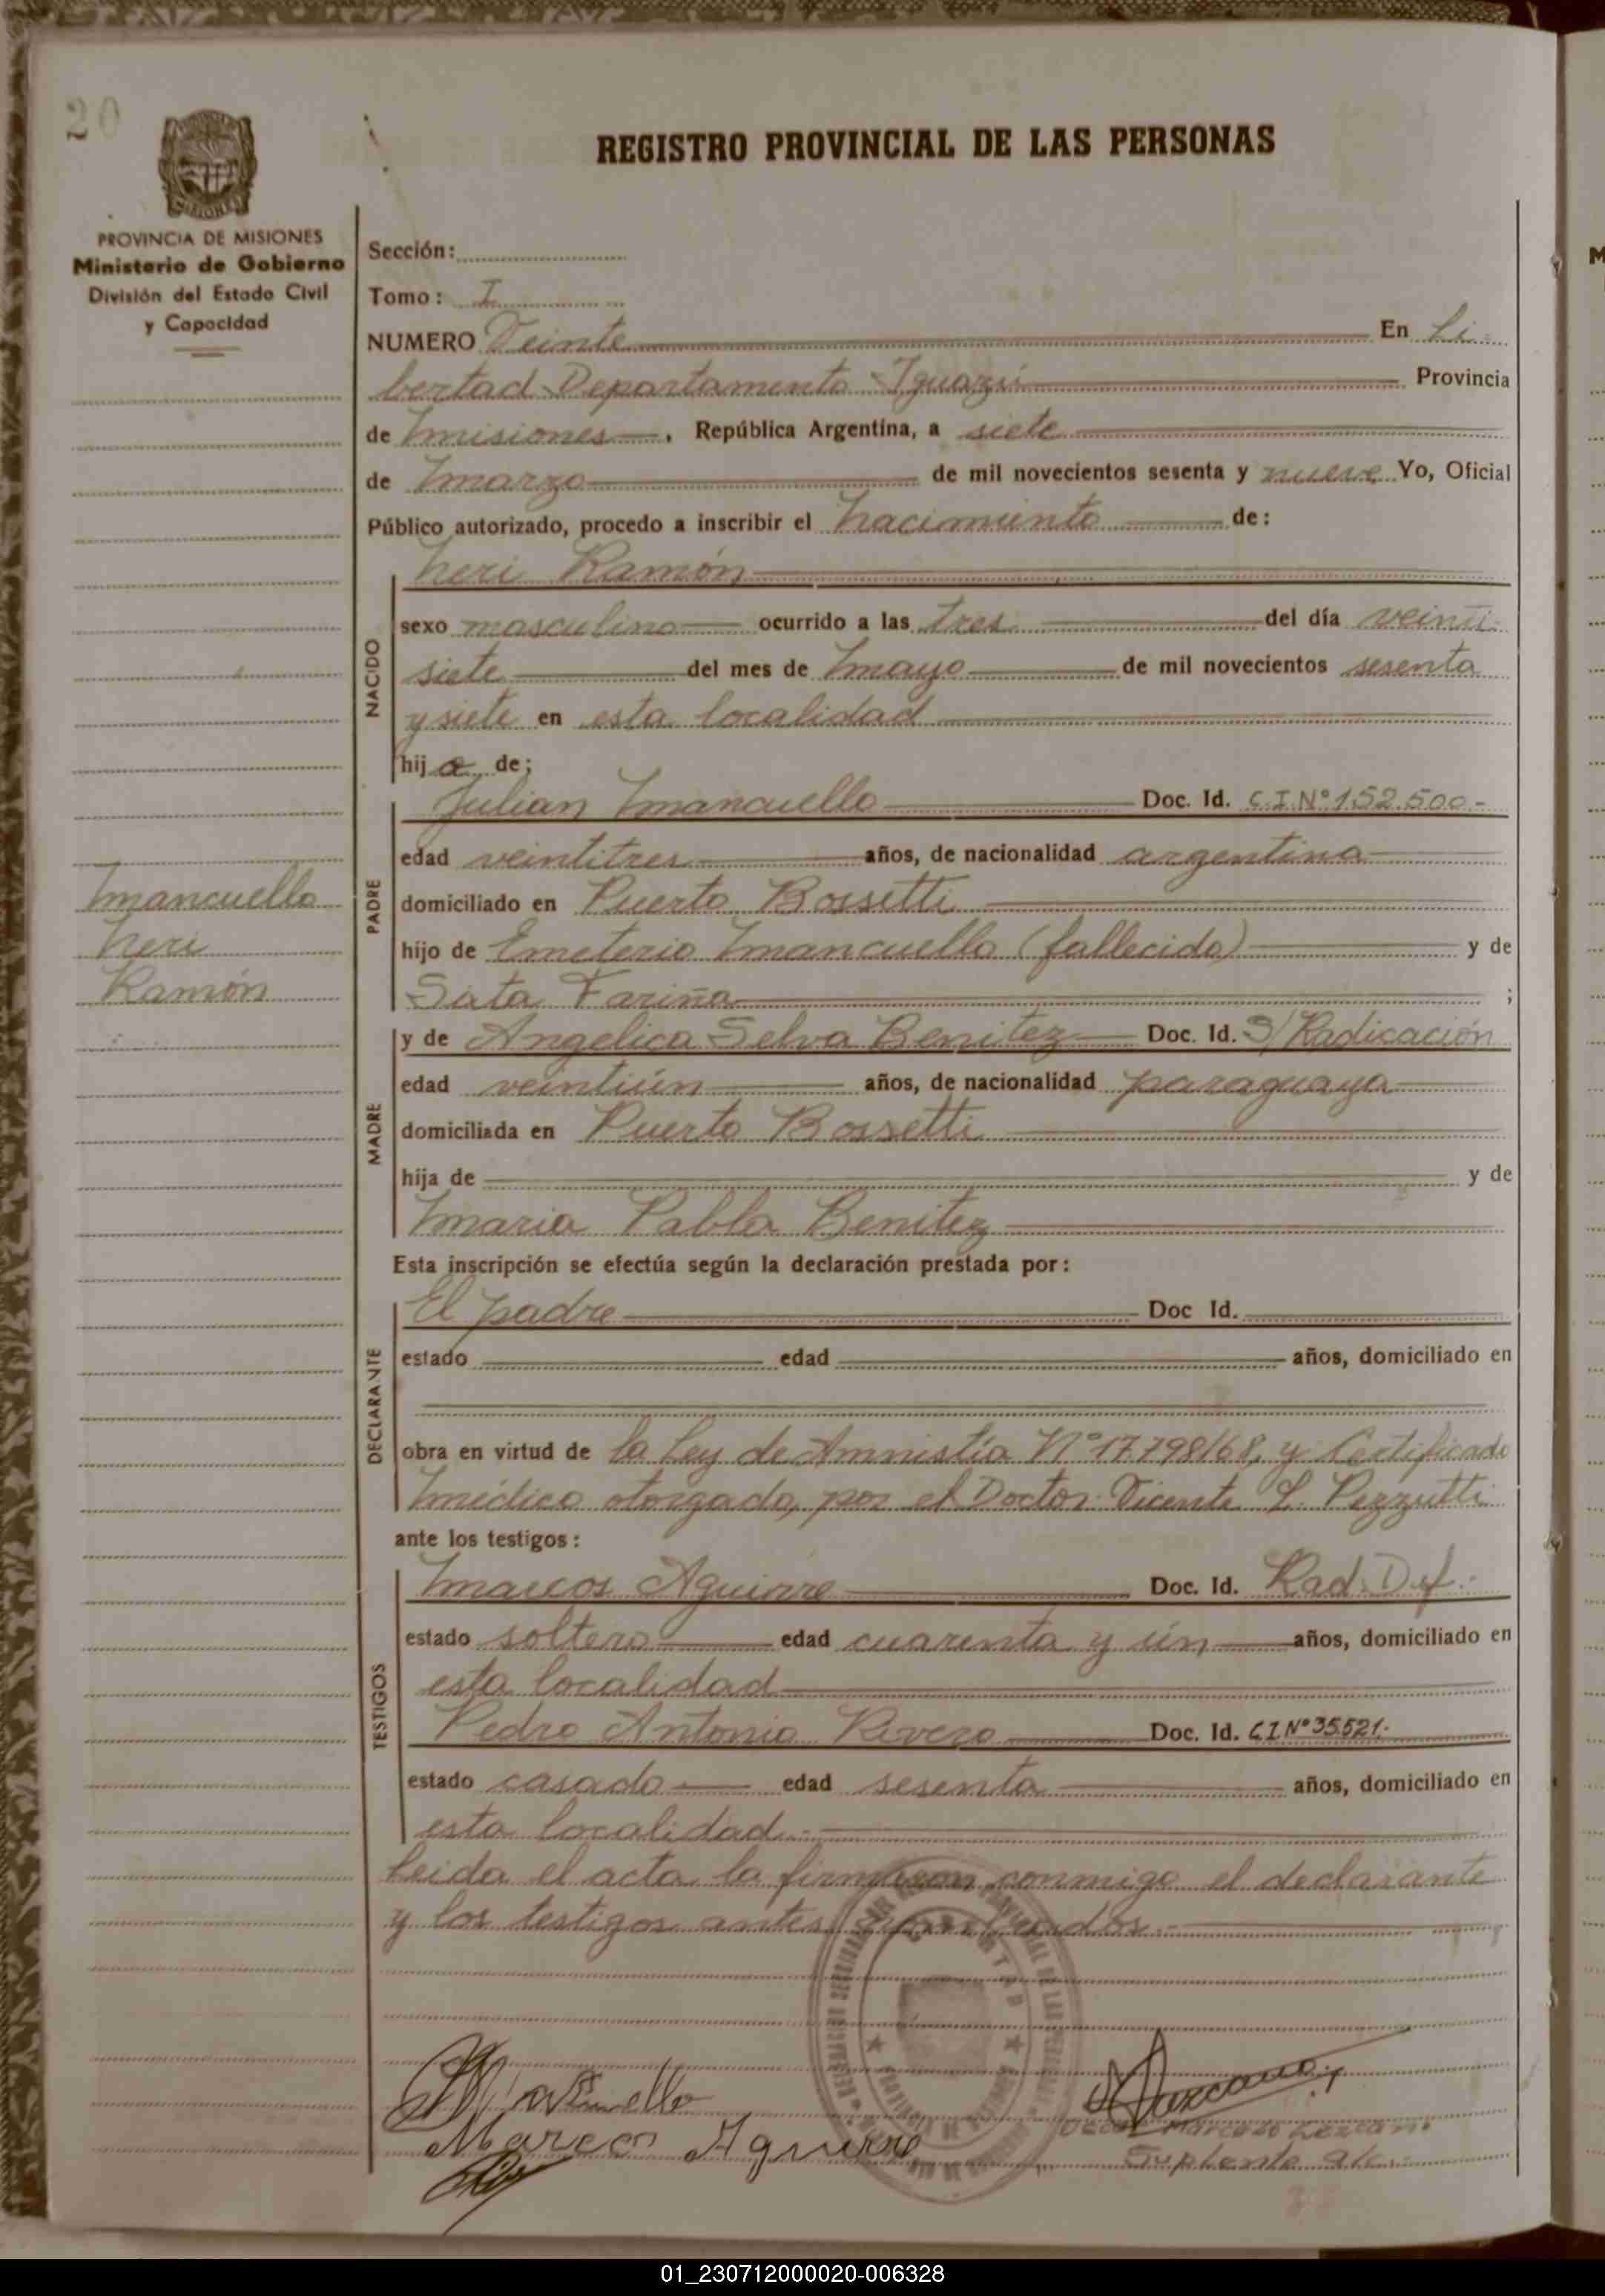 20
REGISTRO PROVINCIAL DE LAS PERSONAS
PROVINCIA DE MISIONES
Ministerio de Gobierno
División del Estado Civil
y Capacidad
Sección:
Tomo: I
NUMERO Veinte En Li-
bertad Departamento Iguazú Provincia
de Misiones, República Argentina, a siete
de Marzo de mil novecientos sesenta y nueve Yo, Oficial
Público autorizado, procedo a inscribir el Nacimiento de:
Neri Ramón
NACIDO
sexo masculino ocurrido a las tres del día veinti-
siete del mes de Mayo de mil novecientos sesenta
y siete en esta localidad
hijo de;
PADRE
Julian Mancuello Doc. Id. C.I.Nº152.500-
edad veintitres años, de nacionalidad argentina
domiciliado en Puerto Bossetti
hijo de Emeterio Mancuello (fallecido) y de
Fariña ;
Mancuello
Neri
Ramón
MADRE
y de Angelica Selva Benitez Doc. Id. S/ Radicación
edad veintiún años, de nacionalidad paraguaya
domiciliada en Puerto Bossetti
hija de y de
Maria Pabla Benitez
Esta inscripción se efectúa según la declaración prestada por:
DECLARANTE
El padre Doc Id.
estado edad años, domiciliado en
obra en virtud de la Ley de Amnistía Nº17.798/68, y Certificado
Médico otorgado, por el Doctor Vicente L. Pezzutti
ante los testigos:
TESTIGOS
Marcos Aguirre Doc. Id. Rad. Def.
estado soltero edad cuarenta y ún años, domiciliado en
esta localidad
Pedro Antonio Rivero Doc. Id. C.I.Nº35.521.-
estado casado edad sesenta años, domiciliado en
esta localidad.-
Leida el acta la firmaron conmigo el declarante
y los testigos antes nombrados.-
Marcos Aguirre
Suplente a/c.
01_230712000020-006328